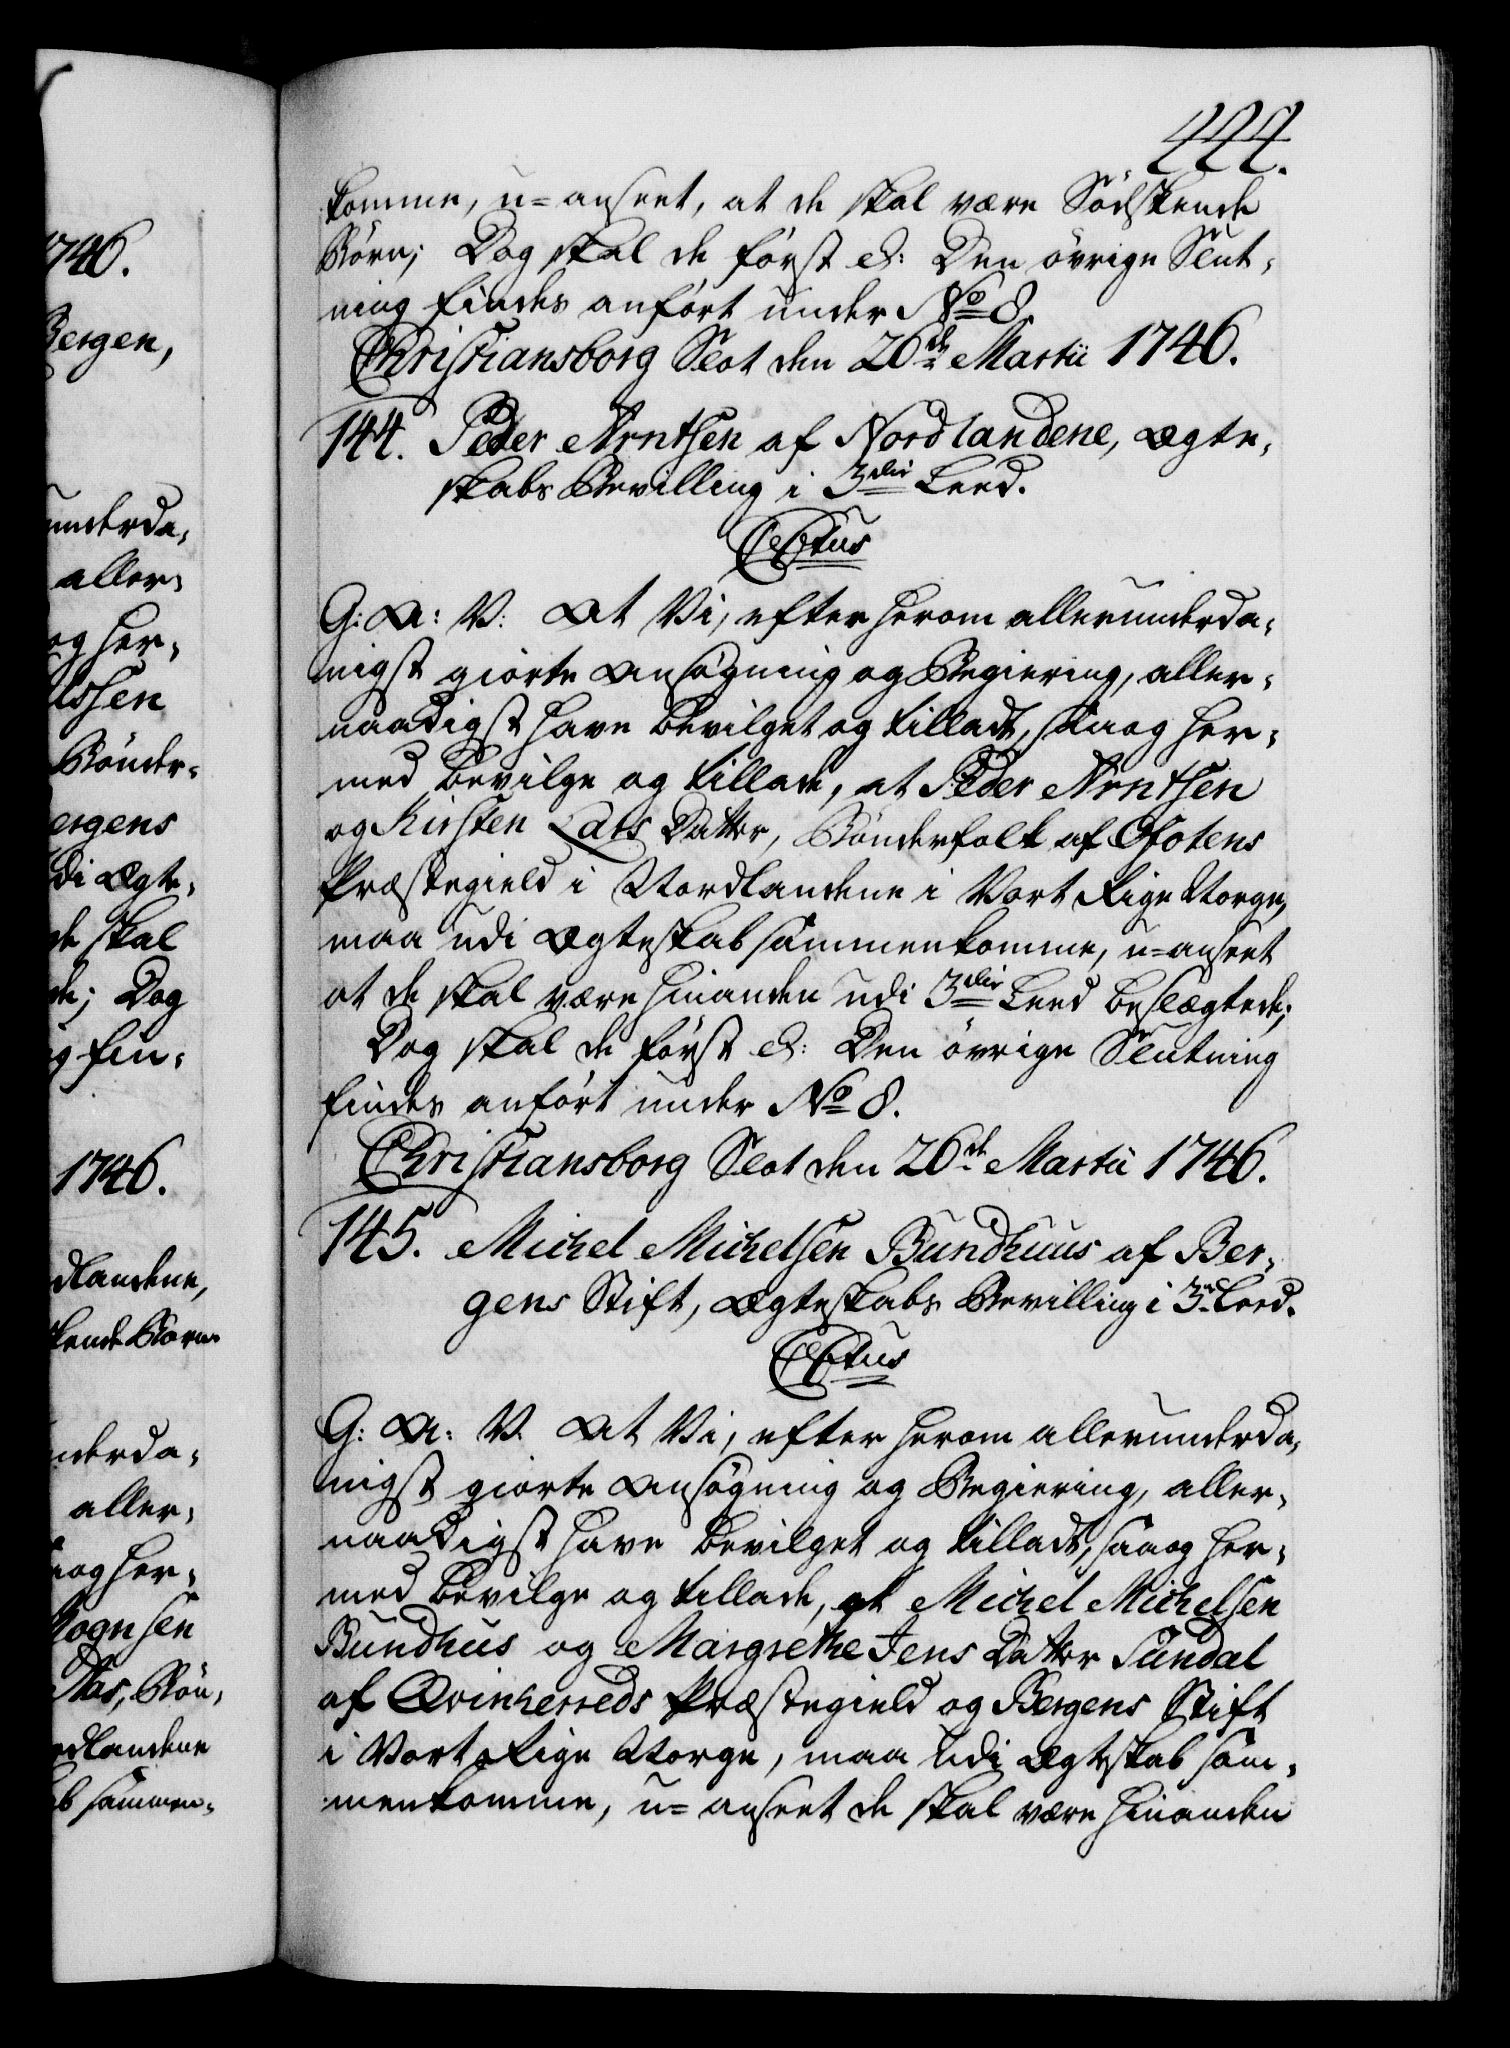 1746.
Bergen,
underda,
aller,
og her,
lssen
Bönder,
ergens
di Ægte,
de skal
de; Dog
g fin,
1746.
dlandene,
kende Börn
nderda,
aller,
aog her,
Mognsen
Bön,
rdlandene
ab sammen,
444.
komme, u=anseet, at de skal være Södskende
Börn; Dog skal de först &: Den övrige Slut,
ning findes anfört under No 8.
Christiansborg Slot den 26de Martii 1746.
144. Peder Arntsen af Nordlandene, Ægte,
skabs Bevilling i 3die Leed.
Cestus
G: A: V: At Vi, efter herom allerunderda,
nigst giorte Ansögning og Begiering, aller,
naadigst have bevilget og tilladt, saa og her,
med bevilge og tillade, at Peder Arntsen
og Kirsten Lars Datter, Bönderfolk af Ofotens
Præstegield i Nordlandene i Vort Rige Norge,
maa udi Ægteskab sammenkomme, u=anseet
at de skal være hinanden udi 3die Leed beslægtede;
Dog skal de först &: Den övrige Slutning
findes anfört under No 8.
Christiansborg Slot den 26de Martii 1746.
145. Michel Michelsen Bundhuus af Ber,
gens Stift, Ægteskabs Bevilling i 3die Leed.
Cestus
G: A: V. At Vi, efter herom allerunderda,
nigst giorte Ansögning og Begiering, aller,
naadigst have bevilget og tilladt, saa og her,
med bevilge og tillade, at Michel Michelsen
Bundhus og Margrethe Jens Datter Sundal
af Qvinherreds Præstegield og Bergens Stift
i Vort Rige Norge, maa udi Ægteskab sam,
menkomme, u=anseet de skal være hinanden